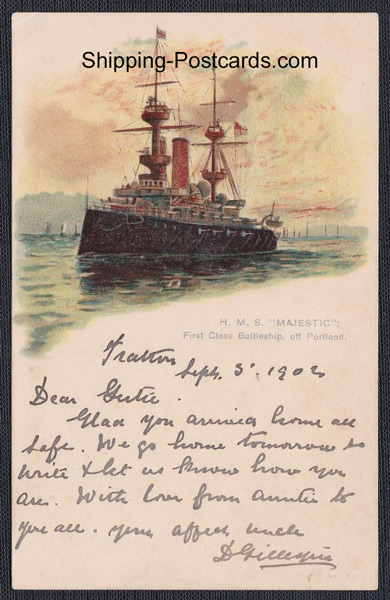 Shipping-Postcards.com
H. M. S. "MAJESTIC";
First Class Battleship, off Portland.
Fratton
Sept. 3. 1902
Dear Gertie.
Glad you arrived home all
safe. We go home tomorrow so
write & let us know how you
are. With love from auntie to
you all. your affect. uncle
D Gillespie